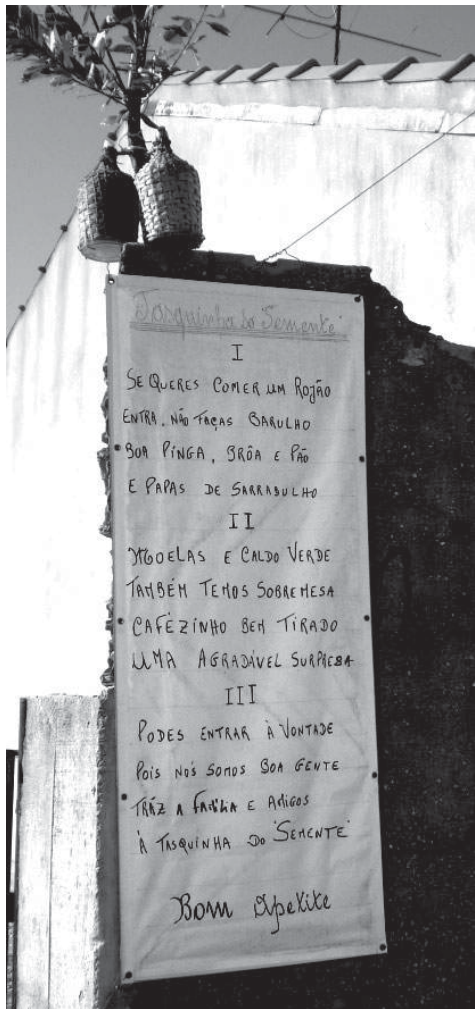 Tasquinha do "Semente"
I
SE QUERES COMER UM ROJÃO
ENTRA, NÃO FAÇAS BARULHO
BOA PINGA, BRÔA E PÃO
E PAPAS DE SARRABULHO
II
MOELAS E CALDO VERDE
TAMBÉM TEMOS SOBREMESA
CAFÉZINHO BEM TIRADO
UMA AGRADÁVEL SURPRESA
III
PODES ENTRAR À VONTADE
POIS NÓS SOMOS BOA GENTE
TRÁZ A FAMÍLIA E AMIGOS
À TASQUINHA DO "SEMENTE"
Bom Apetite